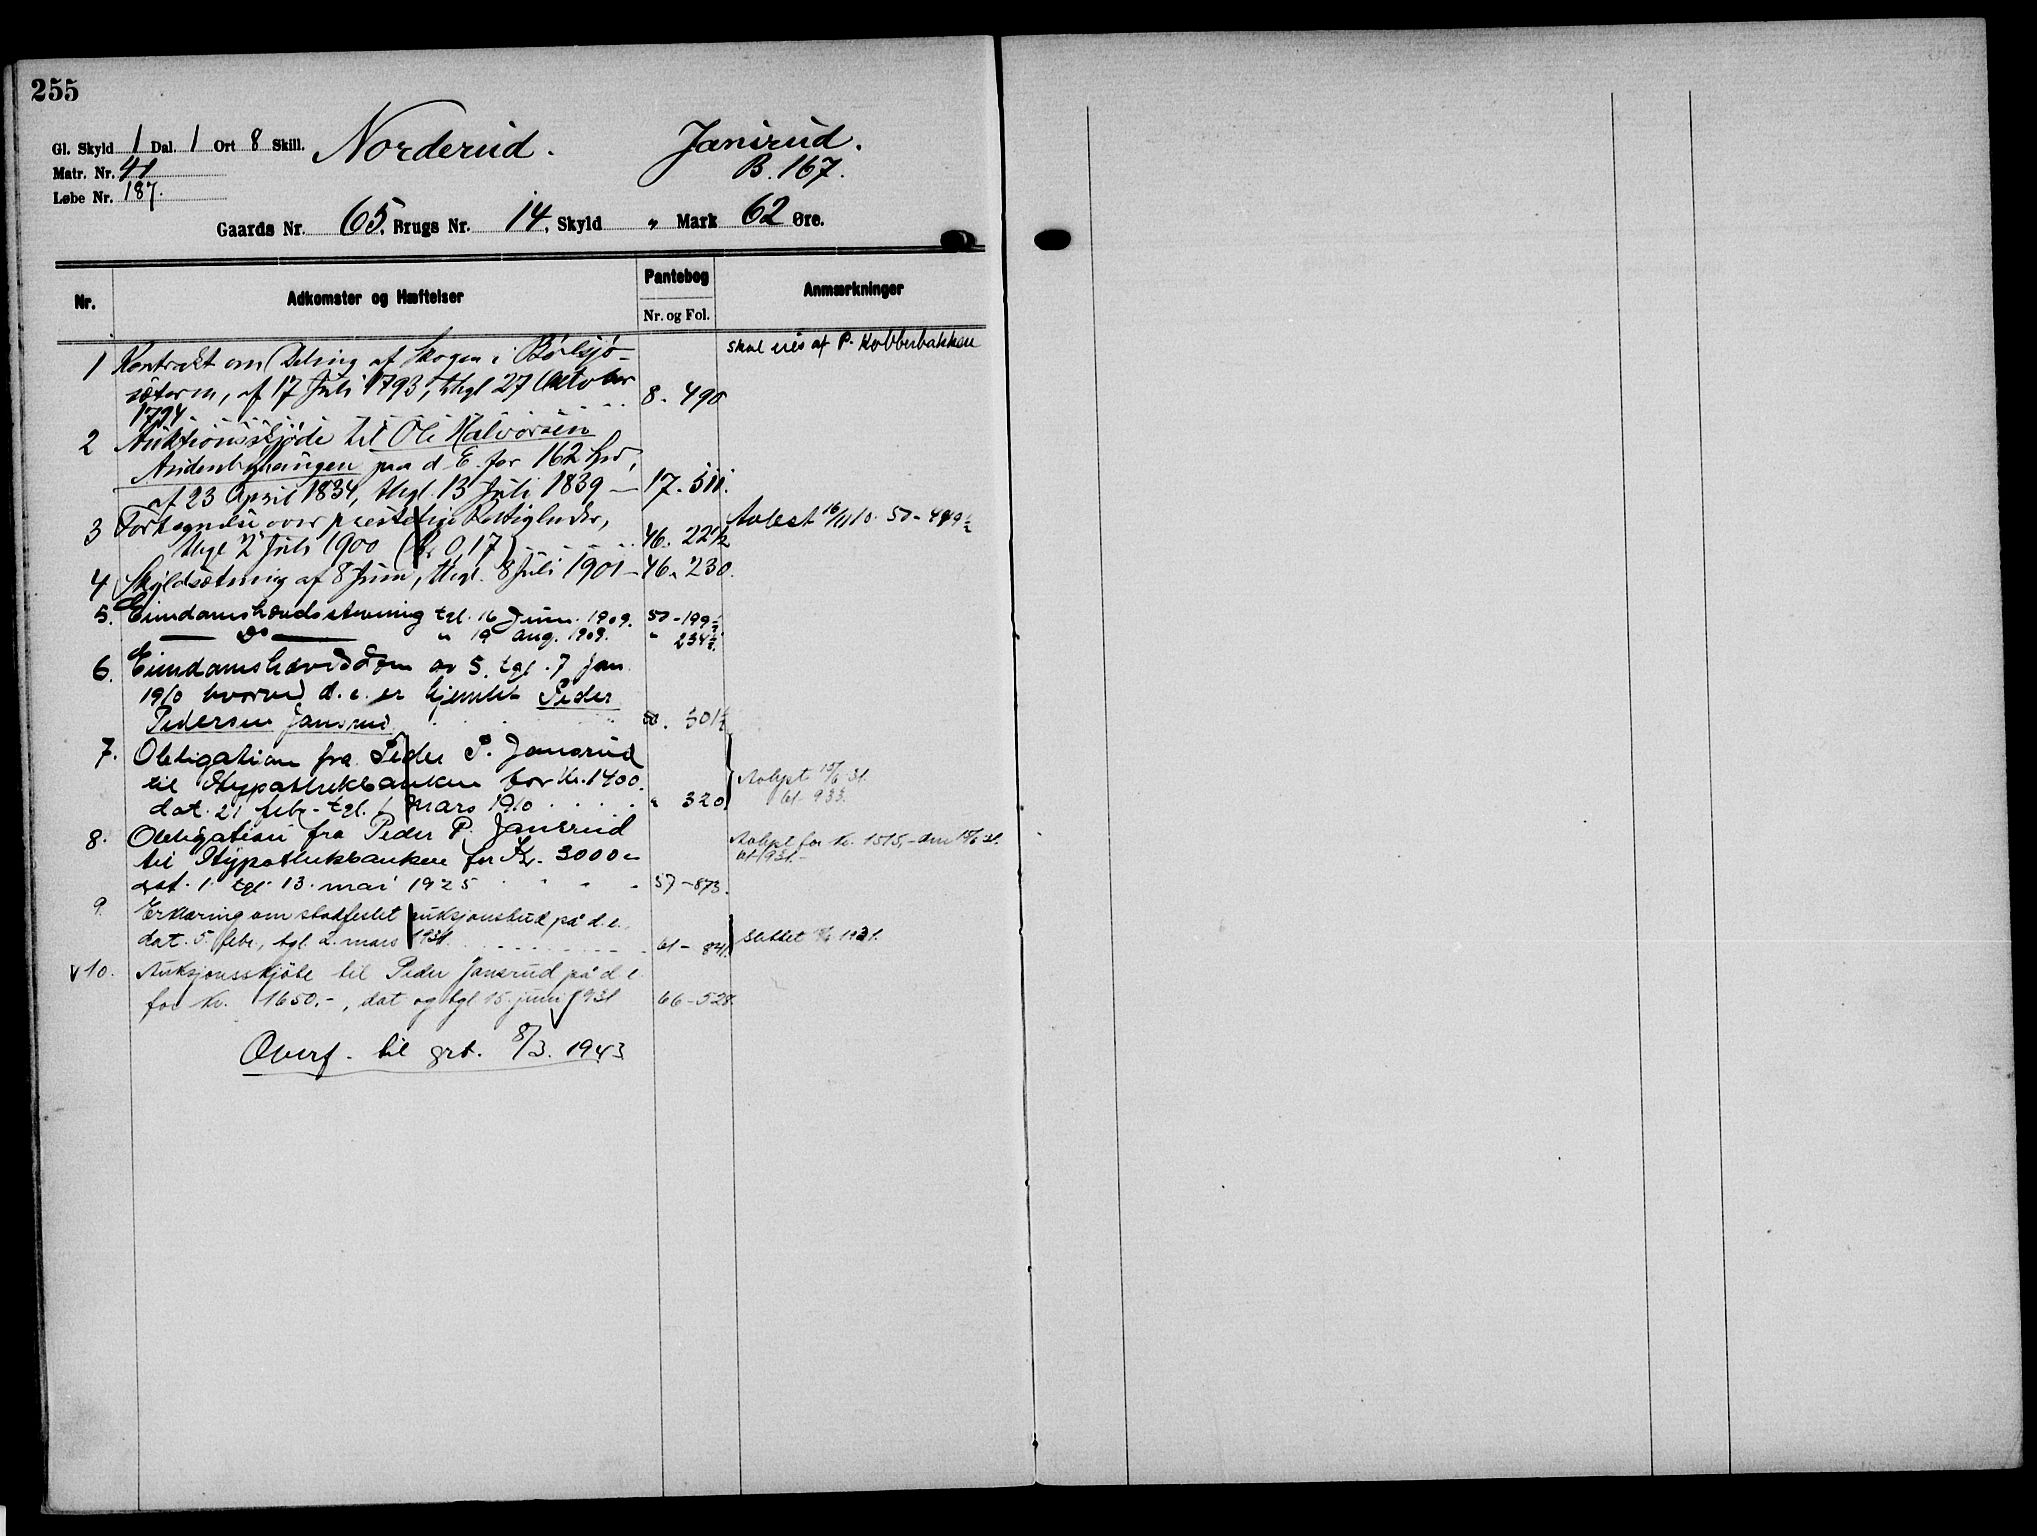 255
Gl. Skyld 1 Dal. 1 Ort 8 Skill. Norderud. Jansrud.
Matr. Nr. 41 B. 167.
Løbe Nr. 187.
Gaards Nr. 65, Brugs Nr. 14, Skyld „ Mark 62 Øre.
Nr. Adkomster og Hæftelser Pantebog Nr. og Fol. Anmærkninger
skal eies af P. Kobberbakken
1 Kontrakt om Deling af Skogen i
sæteren, af 17 Juli 1793, thgl 27 Oktober 8. 490
1794
2 Auktionsskjøde til Ole Halvorsen
paa d. E. for 162 Spd,
af 23 April 1834, thgl. 13 Juli 1839 — 17. 511.
3 Fortegnelse over præstelige Rettigheder, Avlest 16/11 10. 50-449½
thgl 2 Juli 1900 (Kr 0,17) 46. 22½
4 Skyldsætning af 8 Juni, thgl. 8 Juli 1901 — 46. 230.
5. Eiendomshævdsstevning tgl. 16 Juni 1909. 50-199½
— Do — " 19 aug. 1909. " 234½.
6. Eiendomshævdsdom av 5. tgl. 7 jan
1910 hvorved d. e. er hjemlet Peder
Pedersen Jansrud 50. 301½
7. Obligation fra Peder P. Jansrud
til Hypothekbanken for Kr. 1400. Avlyst 15/6 31.
dat. 21 febr. tgl. 1 mars 1910 " 320 61-933.
8. Obligation fra Peder P. Jansrud Avlyst for kr. 1515,- den 15/6 31.
til Hypothekbanken for Kr. 3000- 61-931.-
dat. 1 tgl. 13. mai 1925 57-873.
9. Erklæring om stadfestet auksjonsbud på d. e.
dat. 5. febr., tgl. 2. mars 1931. 61-841. Slettet 15/6 1931.
v 10. Auksjonsskjøte til Peder Jansrud på d. e.
for kr. 1650.-, dat og tgl 15. juni 1931 66-528.
Overf. til grb. 8/3. 1943